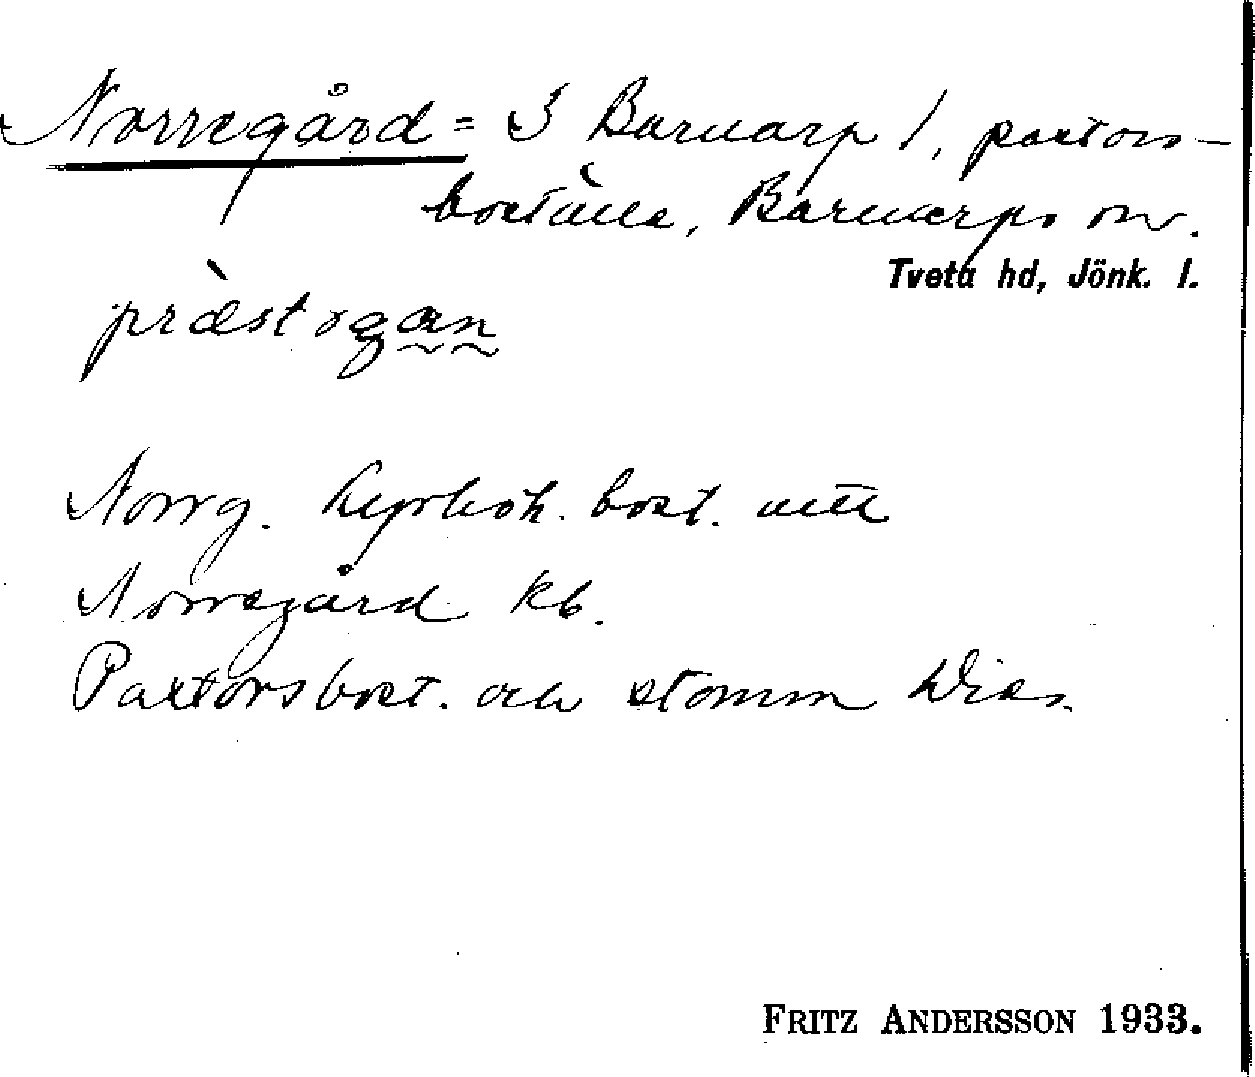 Norregård = I Barnarp 1, pastors-
boställe, Barnarps sn.
Tveta hd, Jönk. l.
præstogan
Norrg. kyrkoh. bost. mtl
Norregård kb.
Pastorsbost. och stomm
FRITZ ANDERSSON 1933.